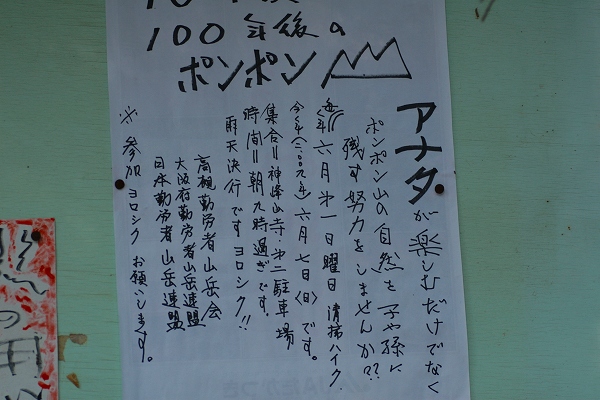 100年後の
ポンポン
アナタが楽しむだけでなく
ポンポン山の自然を子や孫に
残す努力をしませんか??
毎年六月第一日曜日 清掃ハイク
今年(二〇〇九年)六月七日(日)です。
集合=神峰山寺・第二駐車場
時間=朝九時過ぎです。
雨天決行ですヨロシク!!
高槻勤労者山岳会
大阪府勤労者山岳連盟
日本勤労者山岳連盟
※参加ヨロシクお願いします。
の用